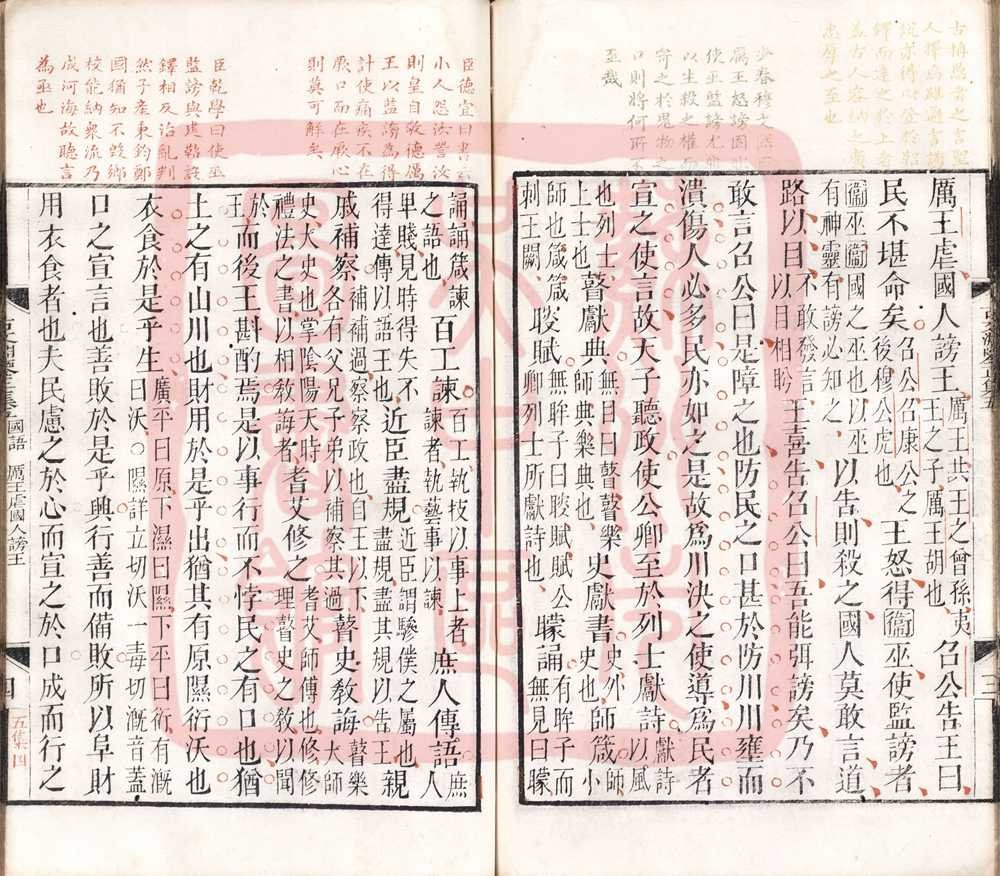 古
人擇焉雖
亦得以登於
鐸而達之於上者
蓋古人容納之廣
忠厚之至也
厲王怒謗固
使巫監謗尤非
以生殺之權而
寄之於鬼物之
口則將何所不
至哉
厲王虐國人謗王厲王共王之曾孫夷王之子厲王胡也召公告王曰
民不堪命矣召公召康公之後穆公虎也王怒得衞巫使監謗者
衞巫衞國之巫也以巫有神靈有謗必知之以告則殺之國人莫敢言道
路以目不敢發言以目相眄王喜告召公曰吾能弭謗矣乃不
敢言召公曰是障之也防民之口甚於防川川壅而
潰傷人必多民亦如之是故為川決之使導為民者
宣之使言故天子聽政使公卿至於列士獻詩獻詩以風
也列士上士也瞽獻典無目曰瞽瞽樂師典樂典也史獻書史外史也師箴師小
師也箴箴刺王闕瞍賦無眸子曰瞍賦賦公卿列士所獻詩也矇誦有眸子而無見曰矇
臣德宜曰書云
小人怨汝詈汝
則皇自敬德厲
王以監謗為得
計使痛疾不在
厥口而在厥心
則莫可解矣
臣乾學曰使巫
監謗與建鞀設
鐸相反治亂判
然子產秉鈞鄭
國猶知不毀鄉
校能納衆流乃
成河海故聽言
為亟也
誦誦箴諫之語也百工諫百工執技以事上者諫者執藝事以諫庶人傳語庶人
卑賤見時得失不得達傳以語王也近臣盡規近臣謂驂僕之屬也盡規盡其規以告王親
戚補察補補過察察政也自王以下各有父兄子弟以補察其過瞽史教誨瞽樂大師
史大史也掌陰陽天時禮法之書以相教誨者耆艾修之耆艾師傅也修修理瞽史之教以聞
於王而後王斟酌焉是以事行而不悖民之有口也猶
土之有山川也財用於是乎出猶其有原隰衍沃也
衣食於是乎生廣平曰原下濕曰隰下平曰衍有溉曰沃○隰詳立切沃一毒切溉音蓋
口之宣言也善敗於是乎興行善而備敗所以阜財
用衣食者也夫民慮之於心而宣之於口成而行之
國語　厲王虐國人謗王
四
五集四